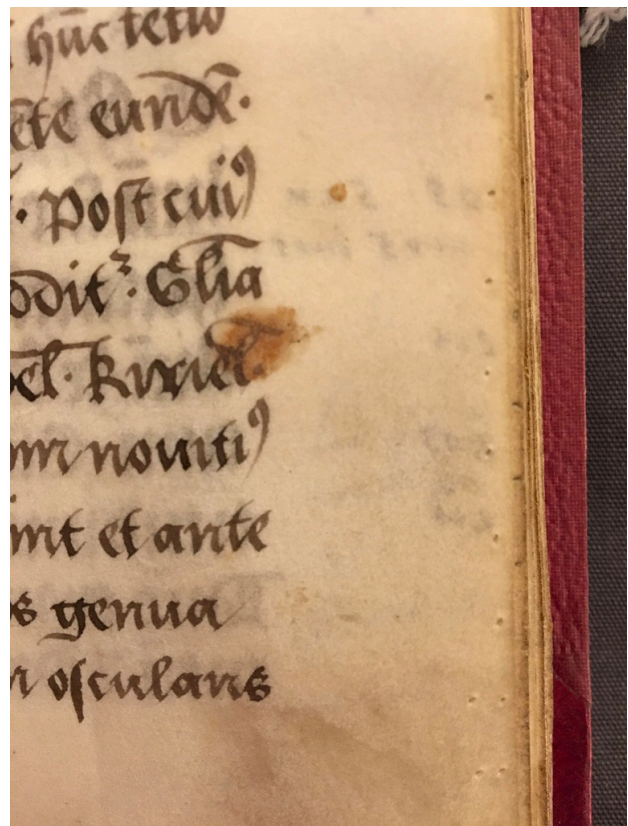 hūc tetio
ēte eundē.
. Post cuiꝰ
oddit᷑. Gl̄ia
el̄. kiriel̄.
m nouitiꝰ
int et ante
s genua
osculans